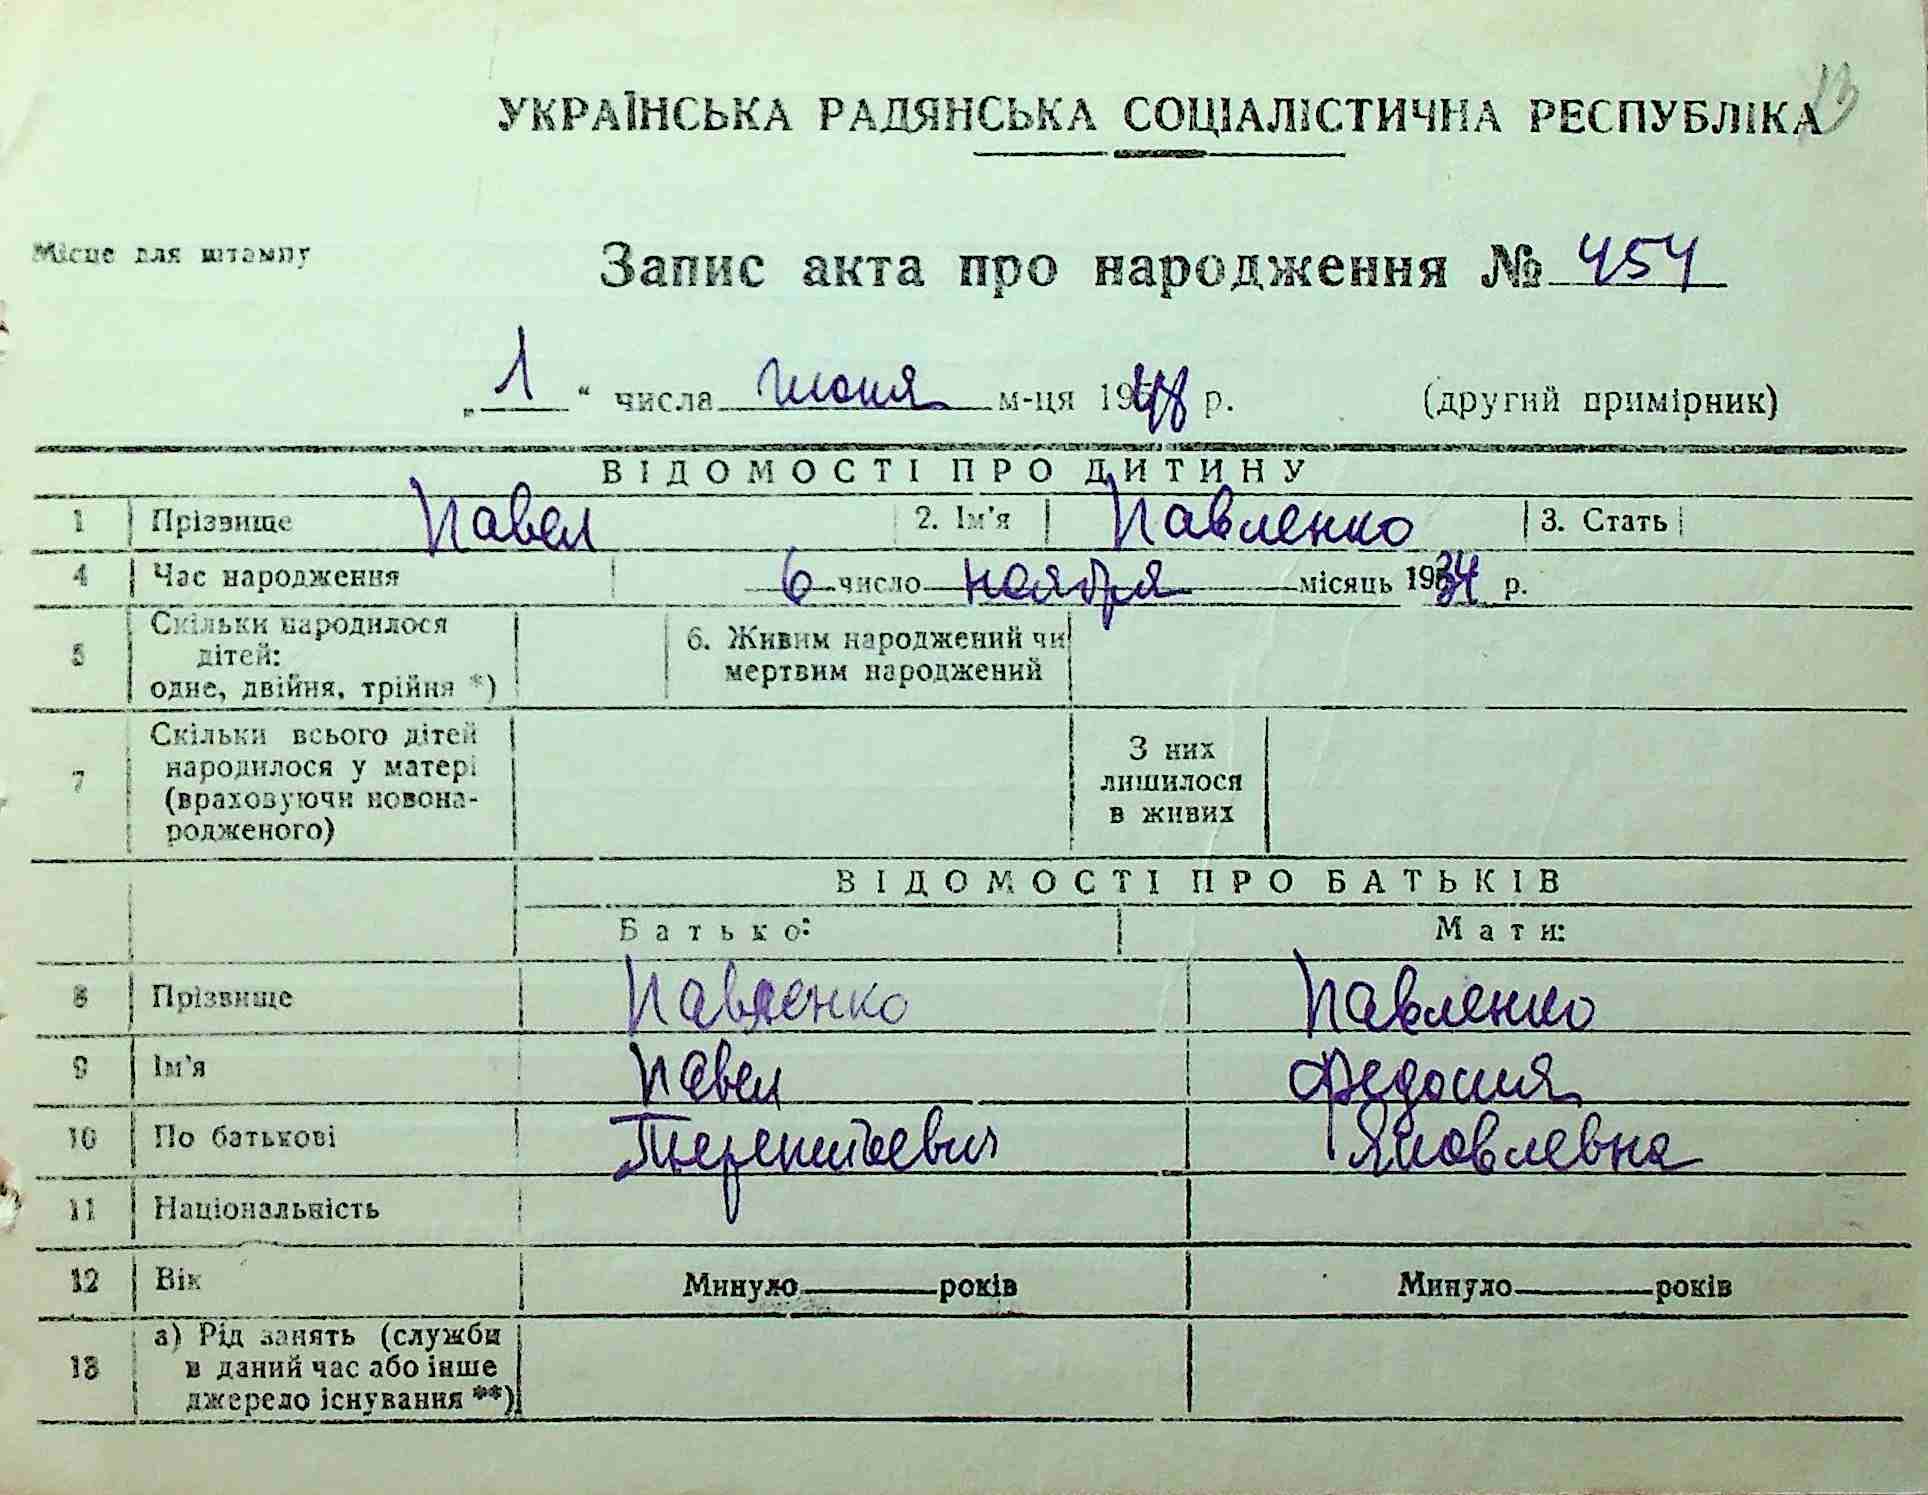 13
УКРАЇНСЬКА РАДЯНСЬКА СОЦІАЛІСТИЧНА РЕСПУБЛІКА
Місце для штампу
Запис акта про народження № 454
„ 1 “ числа июня м-ця 1948 р. (другий примірник)
ВІДОМОСТІ ПРО ДИТИНУ
1 Прізвище Павел 2. Ім'я Павленко 3. Стать
4 Час народження 6 число ноября місяць 1934 р.
5 Скільки народилося дітей: одне, двійня, трійня *) 6. Живим народжений чи мертвим народжений
7 Скільки всього дітей народилося у матері (враховуючи новона-родженого) З них лишилося в живих
ВІДОМОСТІ ПРО БАТЬКІВ
Батько: Мати:
8 Прізвище Павленко Павленко
9 Ім'я Павел Федосия
10 По батькові Терентьевич Яковлевна
11 Національність
12 Вік Минуло років Минуло років
13 а) Рід занять (служби в даний час або інше джерело існування **)